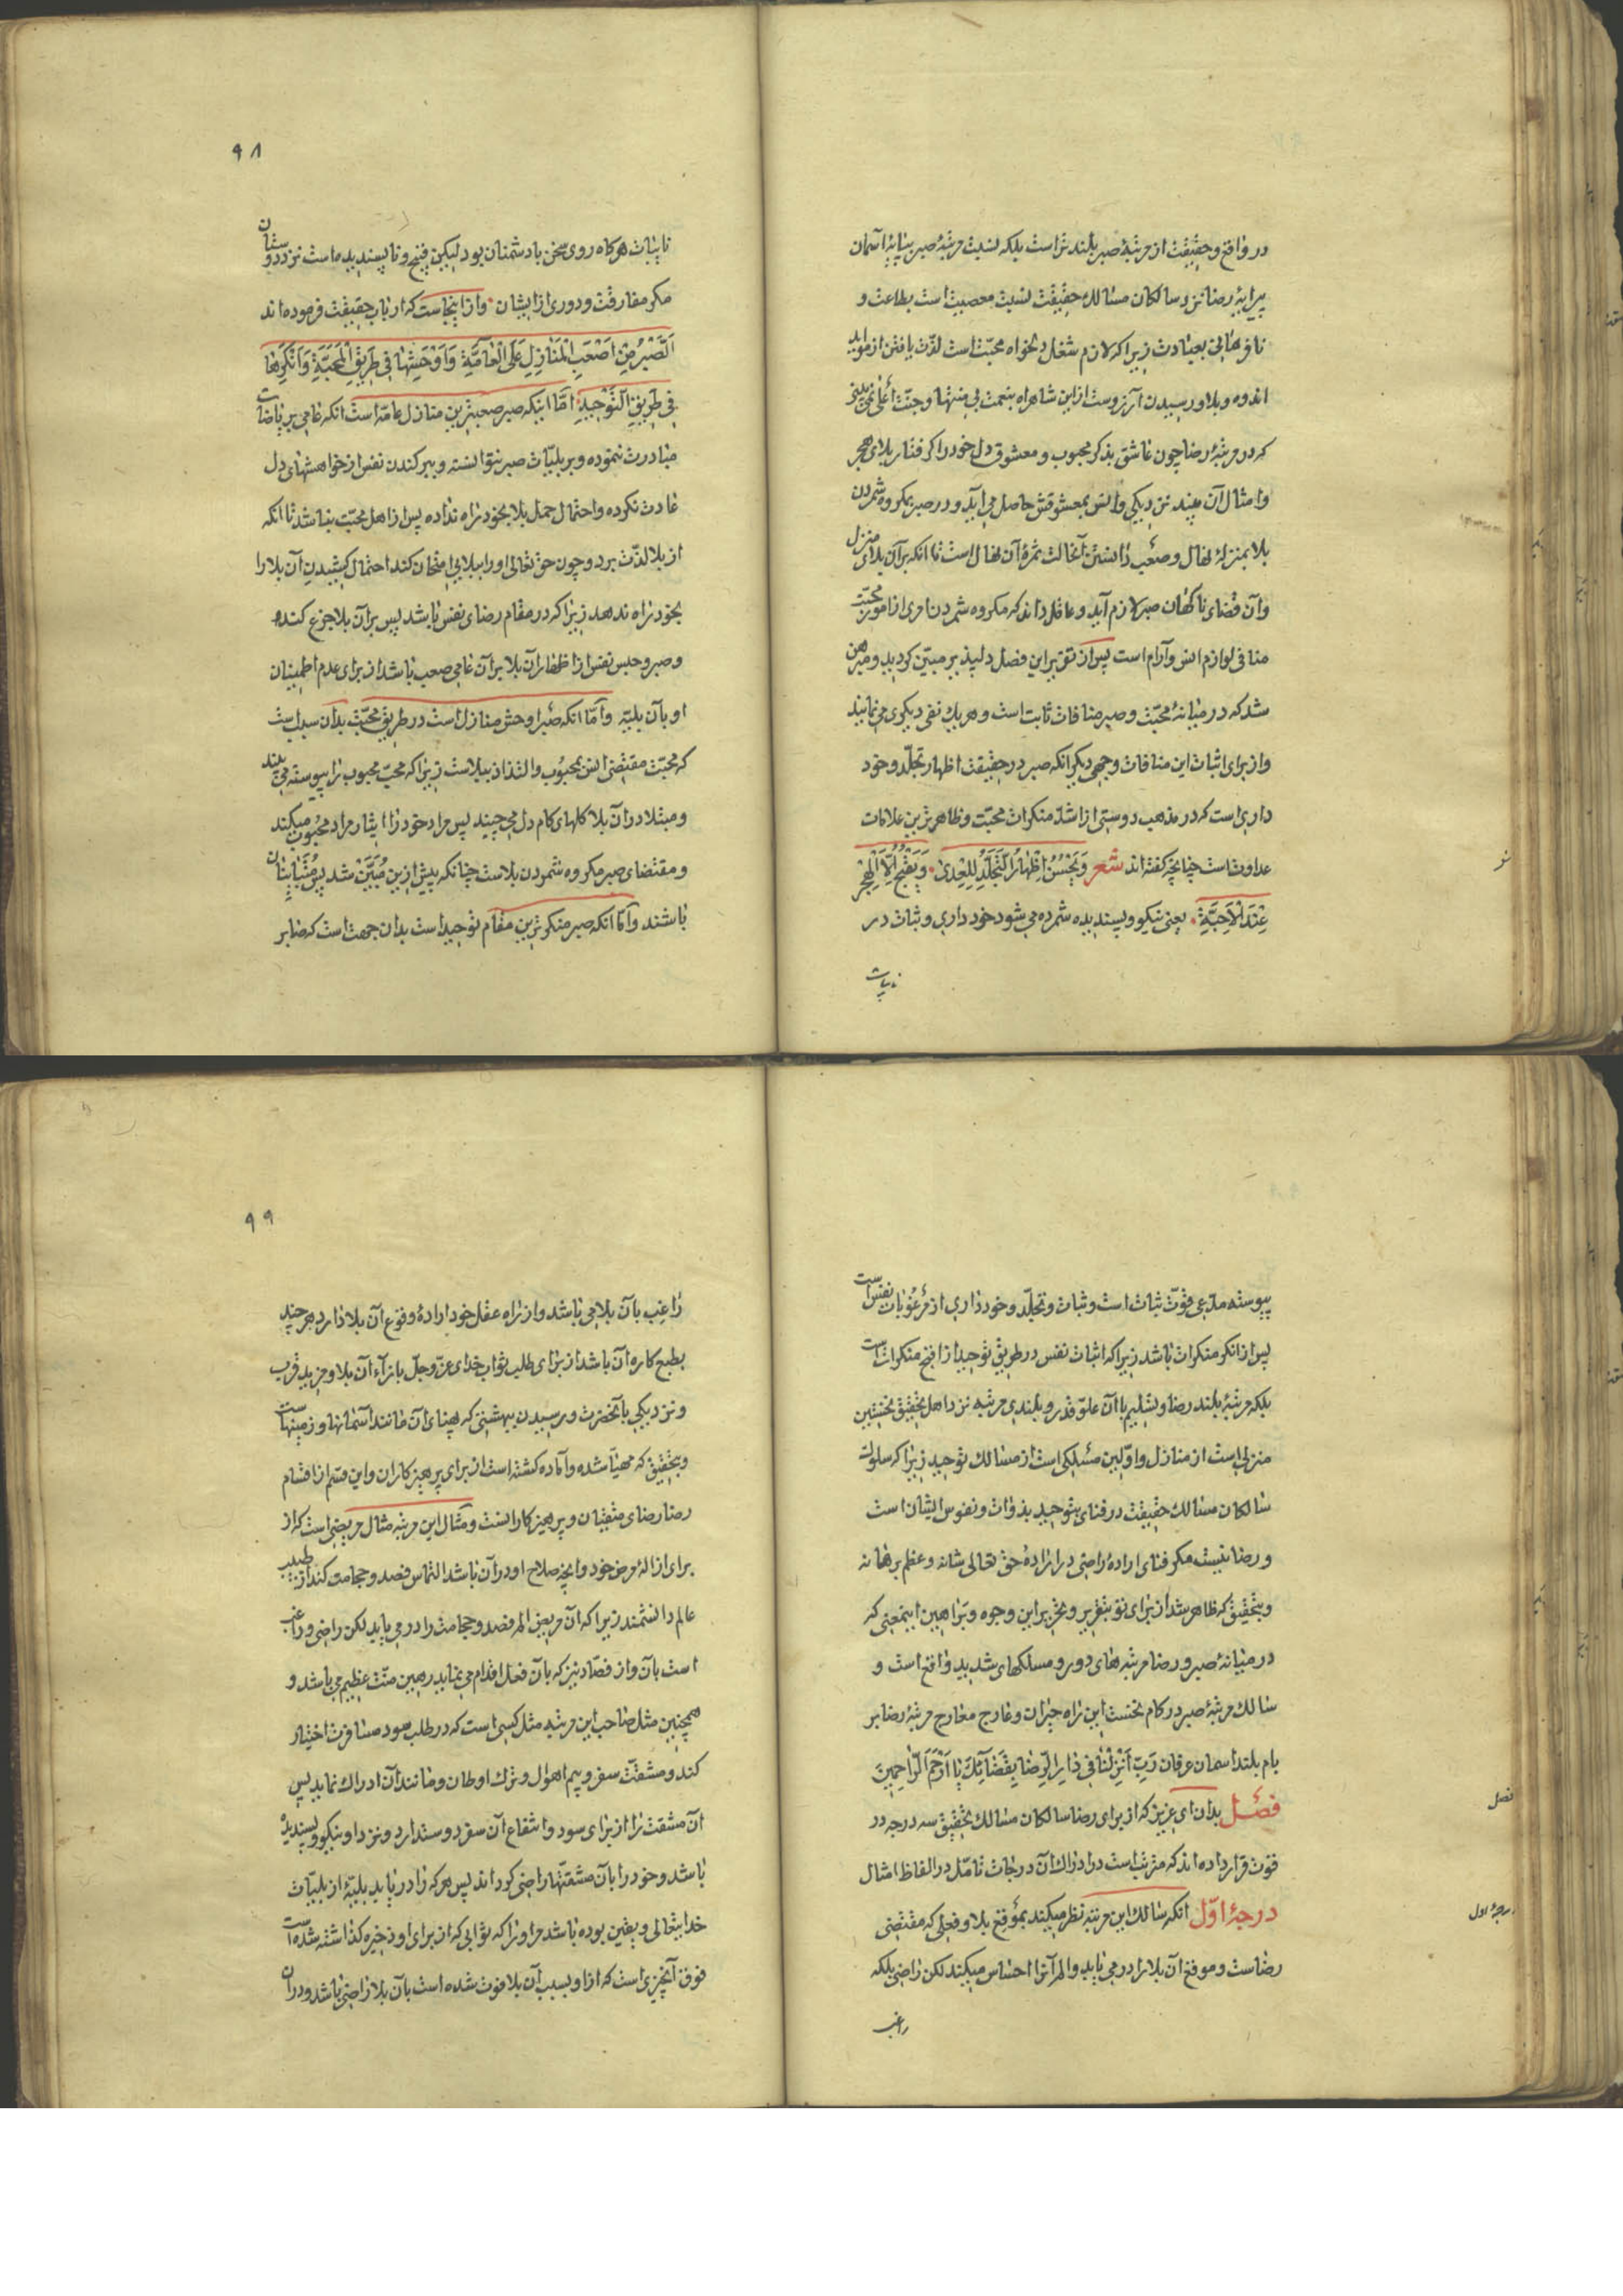 در واقع و حقیقت از مرتبهٔ صبر بلندتر است بلکه نسبت مرتبهٔ صبر به پایهٔ آسمان
پیرایهٔ رضا نزد سالکان مسالك حقیقت نسبت معصیت است بطاعت و
نافرمانی بعبادت زیرا که لازم شغل دلخواه محبّت است لذّت یافتن از موائد
اندوه و بلا و رسیدن آرزوست ازاین شاهراه بنعمت بی منتها و جنّت أعلی
که در مرتبهٔ رضا چون عاشق بذکر محبوب و معشوق دل خود را گرفتار بلای هجر
وامثال آن بیند نزدیکی وانس بمعشوقش حاصل می آید و در صبر مکروه شمردن
بلا بمنزلهٔ نهال و صعب دانستن آنحالت ثمرهٔ آن نهال است تا انکه بر آن بلای منزل
وآن قضای ناگهان صبر لازم آید و عاقل داند که مکروه شمردن امری از امور محبّت
منافی لوازم انس وآرام است پس از تقریر این فصل دلپذیر مبیّن گردید و مبرهن
شد که در میانهٔ محبّت و صبر منافات ثابت است و هریك نفی دیگری می نمایند
واز برای اثبات این منافات وجهی دیگر انکه صبر در حقیقت اظهار تجلّد و خود
داری است که در مذهب دوستی از اشدّ منکرات محبّت و ظاهرترین علامات
عداوت است چنانچه گفته اند شعر وَیَحْسُنُ اِظْهارُ التَّجَلُّدِ لِلْعِدی وَیَقْبُحُ اِلَّا الْعَجْزُ
عِنْدَ الْاَحِبَّةِ یعنی نیکو و پسندیده شمرده می شود خود داری و ثبات در
نایبات
۹۸
نایبات هرگاه روی سخن با دشمنان بود لیکن قبیح و ناپسندیده است نزد دوستان
مگر مفارقت و دوری از ایشان وازاینجاست که ارباب حقیقت فرموده اند
اَلصَّبْرُ مِنْ اَصْعَبِ الْمَنازِلِ عَلَی الْعامَّةِ وَاَوْحَشِها فی طَریقِ الْمَحَبَّةِ وَاَنْکَرِها
فی طَریقِ التَّوْحیدِ امّا اینکه صبر صعبترین منازل عامّه است انکه عامی بر یاضات
مبادرت ننموده و بر بلیّات صبر نتوانسته و ببر کندن نفس از خواهشهای دل
عادت نکرده واحتمال حمل بلا بخود راه نداده پس از اهل محبّت نباشد تا انکه
از بلا لذّت برد و چون حق تعالی او را ببلایی امتحان کند احتمال کشیدن آن بلا را
بخود راه ندهد زیرا که در مقام رضای نفس باشد پس بر آن بلا جزع کند
و صبر و حبس نفس از اظهار آن بلا بر آن عامی صعب باشد از برای عدم اطمینان
او بآن بلیّه وامّا انکه صبر اوحش منازل است در طریق محبّت بدان سبب است
که محبّت مقتضی انس بمحبوب والتذاذ ببلاست زیرا که محبّ محبوب را پیوسته می بیند
و مبتلا در آن بلا گلهای کام دل می چیند پس مراد خود را ایثار مراد محبوب میکند
و مقتضای صبر مکروه شمردن بلاست چنانکه پیش ازین مُبَیَّن شد پس مُتَباینان
باشند وامّا انکه صبر منکرترین مقام توحید است بدان جهت است که صابر
پیوسته مدّعی قوّت ثبات است و ثبات و تجلّد و خود داری از مرغوبات نفس است
پس از انکر منکرات باشد زیرا که اثبات نفس در طریق توحید از اقبح منکرات است
بلکه مرتبهٔ بلند رضا و تسلیم با آن علوّ قدر و بلندی مرتبه نزد اهل تحقیق نخستین
منزلی است از منازل واوّلین مسلکی است از مسالك توحید زیرا که سلوك
سالکان مسالك حقیقت در فنای بتوحید بذوات و نفوس ایشان است
و رضا نیست مگر فنای ارادهٔ راضی در ارادهٔ حق تعالی شانه و عظم برهانه
و بتحقیق که ظاهر شد از برای تو بتقریر و تحریر این وجوه و براهین اینمعنی که
در میانهٔ صبر و رضا مرتبه های دور و مسلکهای شدید واقع است و
سالك مرتبهٔ صبر در گام نخست این راه حیران و عارج معارج مرتبهٔ رضا بر
بام بلند اسمان عرفان رَبِّ اَنْزِلْنا فی دارِ الرِّضا بِقَضآئِكَ یا اَرْحَمَ الرّاحِمینَ
فصل بدان ای عزیز که از برای رضا سالکان مسالك تحقیق سه درجه در
فوت قرار داده اند که مترتّب است در ادراك آن درجات تامّل در الفاظ امثال
درجهٔ اوّل انکه سالك این مرتبه نظر میکند بموقع بلا و فعلی که مقتضی
رضاست و موقع آن بلا را در می یابد والم آنرا احساس میکند لکن راضی بلکه
راغب
فصل
درجهٔ اول
۹۹
راغب بآن بلا می باشد واز راه عقل خود ارادهٔ وقوع آن بلا دارد هر چند
بطبع کاره آن باشد از برای طلب ثواب خدای عزّ وجلّ بازآء آن بلا و مزید قرب
و نزدیکی بآنحضرت و رسیدن ببهشتی که پهنای آن مانند آسمانها و زمینهاست
و بتحقیق که مهیّا شده وآماده گشته است از برای پرهیز کاران واین قسم از اقسام
رضا رضای متقیان و پرهیز کارانست و مثال این مرتبه مثال مریضی است که از
برای ازالهٔ مرض خود وانچه صلاح او در آن باشد التماس فصد و حجامت کند از طبیب
عالم دانشمند زیرا که آن مریض الم فصد و حجامت را در می یابد لکن راضی و راغب
است بآن واز فصّاد نیز که بآن فعل اقدام می نماید رهین منّت عظیم می باشد و
همچنین مثل صاحب این مرتبه مثل کسی است که در طلب سود مسافرت اختیار
کند و مشقّت سفر و بیم اهوال و ترك اوطان و مانند آن ادراك نماید پس
آن مشقت را از برای سود وانتفاع آن سفر دوستدارد و نزد او نیکو و پسندیده
باشد و خود را بآن مشقتها راضی گرداند پس هر که را دریابد بلیّهٔ از بلیّات
خدایتعالی و یقین بوده باشد مر او را که ثوابی که از برای او ذخیره گذاشته شده است
فوق آنچیزی است که از او بسبب آن بلا فوت شده است بآن بلا راضی باشد و در آن